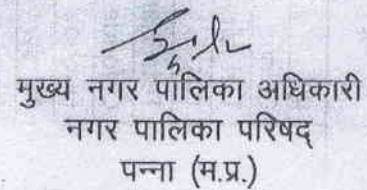 मुख्य नगर पालिका अधिकारी
नगर पालिका परिषद्
पन्ना (म.प्र.)